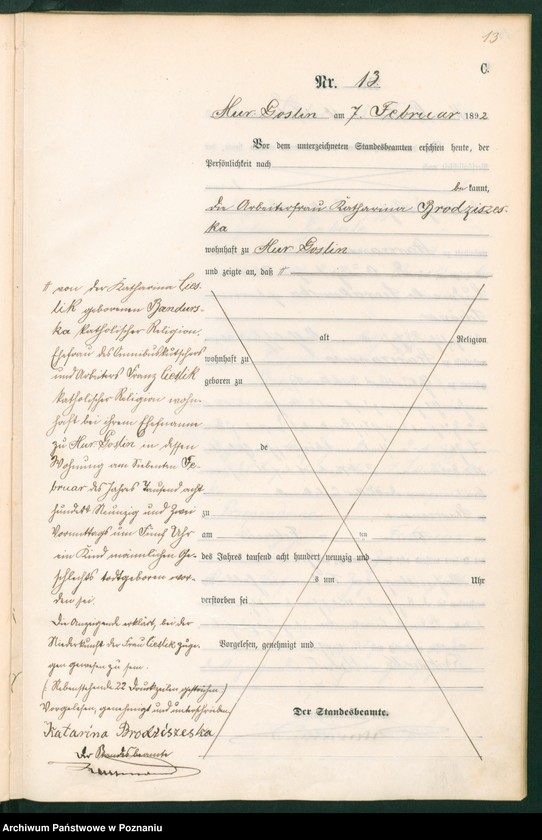 13
C.
Nr. 13
Mur. Goslin am 7. Februar 1892
Vor dem unterzeichneten Standesbeamten erschien heute, der
Persönlichkeit nach
be kannt,
die Arbeiterfrau Katharina Brodzises-
ka
wohnhaft zu Mur Goslin
und zeigte an, daß
alt Religion
wohnhaft zu
geboren zu
de
zu
am
des Jahres tausend acht hundert neunzig und
s um Uhr
verstorben sei
Vorgelesen, genehmigt und
Der Standesbeamte.
von der Katharina Cies-
lik geborenen Banders-
ka katholischer Religion,
Ehefrau des Omnibuskutschers
und Arbeiters Franz Cieslik
katholischer Religion wohn-
haft bei ihrem Ehemanne
zu Mur. Goslin in dessen
Wohnung am siebenten Fe-
bruar des Jahres tausend acht
hundert Neunzig und Zwei
Vormittags um Fünf Uhr
ein Kind männlichen Ge-
schlechts todtgeboren wor-
den sei.
Die Anzeigende erklärt, bei der
Niederkunft der Frau Cieslik zuge-
gen gewesen zu sein.
(Nebenstehende 22 Druckzeilen gestrichen.)
Vorgelesen, genehmigt und unterschrieben
Katarina Brodziszeska
Der Standesbeamte
Archiwum Państwowe w Poznaniu